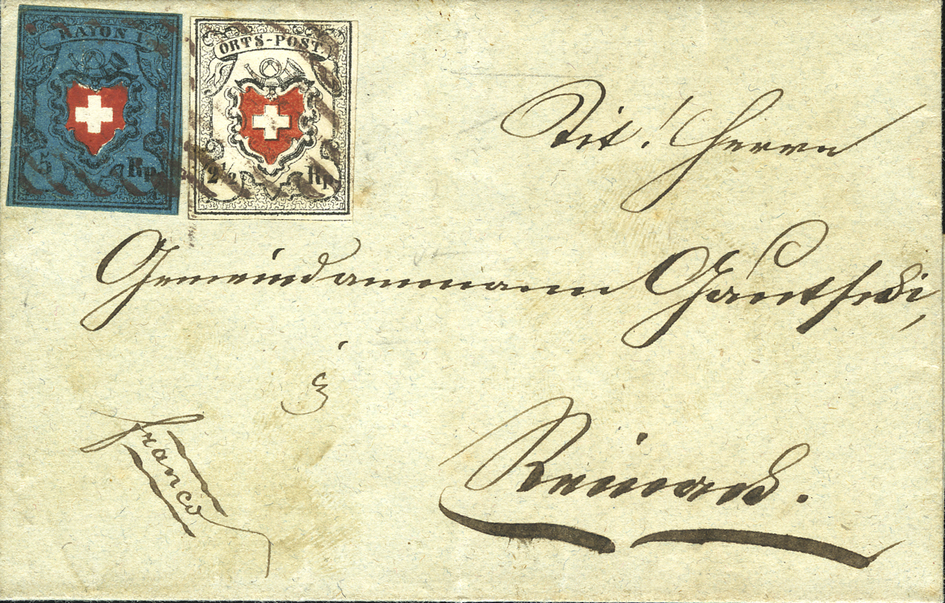 RAYON I
5 Rp.
ORTS-POST.
2½ Rp.
Tit. Herrn
Gemeindammann Gautschi,
in
Reinach.
Franco